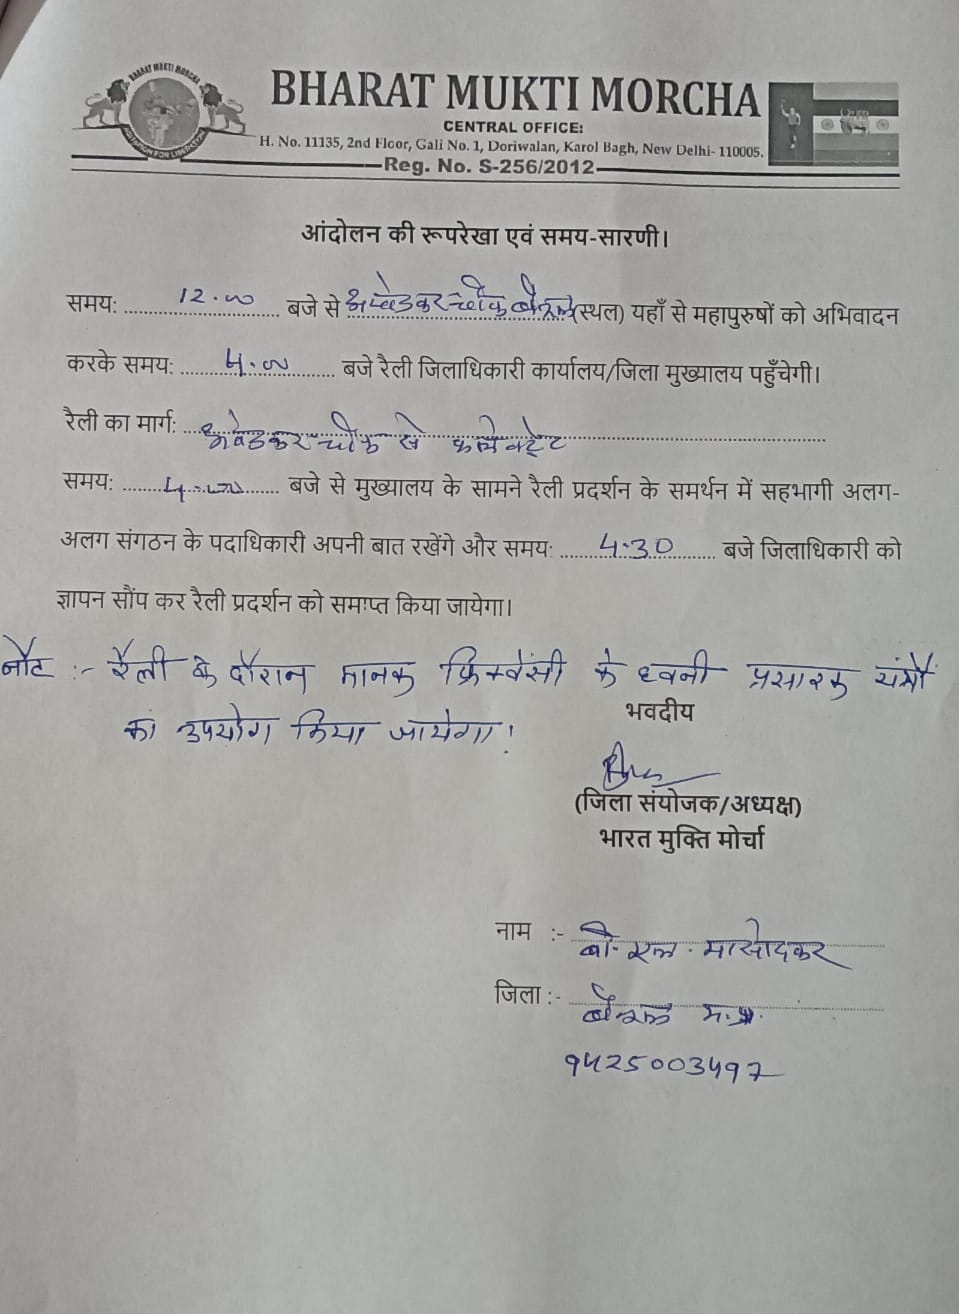 BHARAT MUKTI MORCHA
BHARAT MUKTI MORCHA
AGITATION FOR LIBERATION
CENTRAL OFFICE:
H. No. 11135, 2nd Floor, Gali No. 1, Doriwalan, Karol Bagh, New Delhi- 110005.
Reg. No. S-256/2012
आंदोलन की रूपरेखा एवं समय-सारणी।
समय: 12.00 बजे से अम्बेडकर चौक बैतूल (स्थल) यहाँ से महापुरुषों को अभिवादन
करके समय: 4.00 बजे रैली जिलाधिकारी कार्यालय/जिला मुख्यालय पहुँचेगी।
रैली का मार्ग: अंबेडकर चौक से कलेक्ट्रेट
समय: 4.00 बजे से मुख्यालय के सामने रैली प्रदर्शन के समर्थन में सहभागी अलग-
अलग संगठन के पदाधिकारी अपनी बात रखेंगे और समय: 4.30 बजे जिलाधिकारी को
ज्ञापन सौंप कर रैली प्रदर्शन को समाप्त किया जायेगा।
नोट :- रैली के दौरान मानक फ्रिक्वेंसी के ध्वनी प्रसारक यंत्रों
का उपयोग किया जायेगा!
भवदीय
(जिला संयोजक/अध्यक्ष)
भारत मुक्ति मोर्चा
नाम :- बी. एल. मासोदकर
जिला :- बैतूल म.प्र.
9425003497